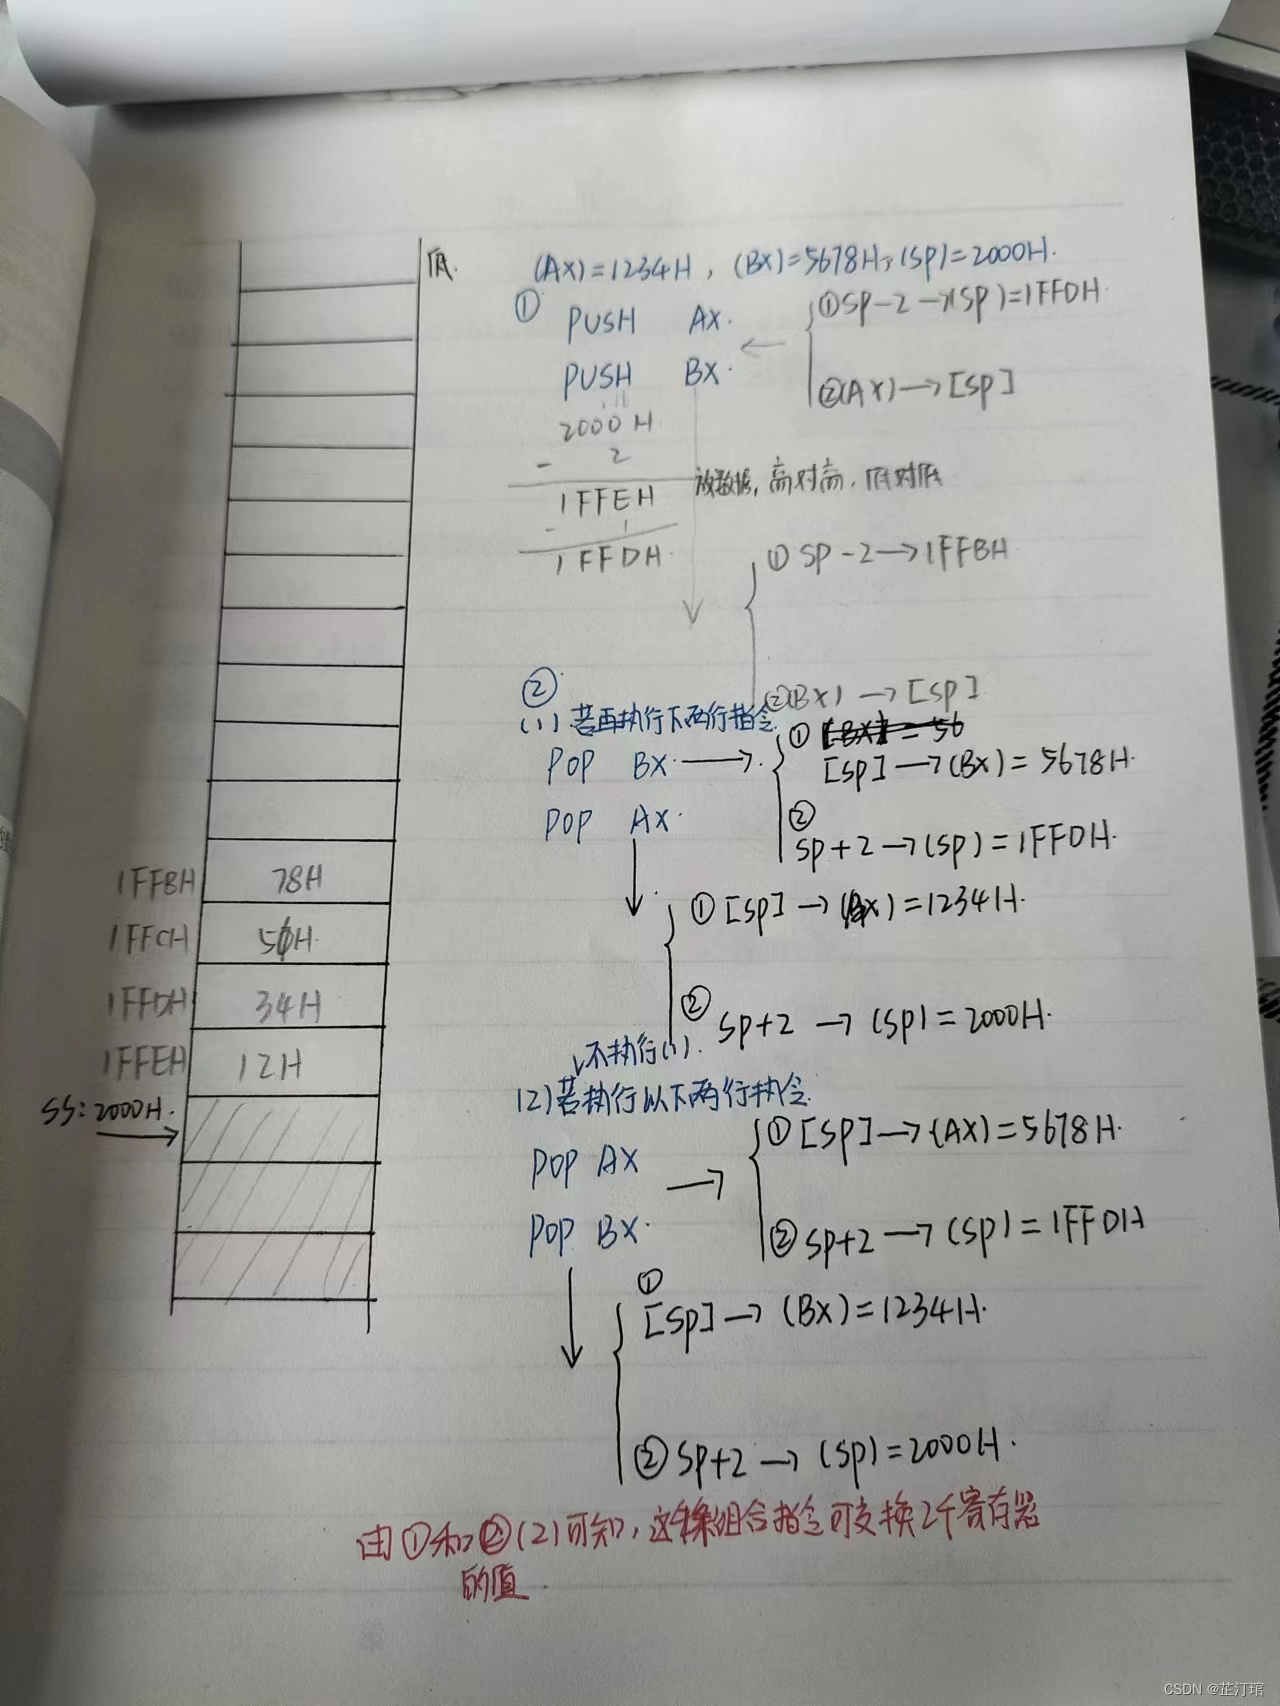 低.
(AX)=1234H, (BX)=5678H, (SP)=2000H.
①
PUSH AX.
PUSH BX.
①SP-2→(SP)=1FFDH.
②(AX)→[SP]
2000H
- 2
1FFEH
- 1
1FFDH
放数据, 高对高, 低对低
①SP-2→1FFBH
②(BX)→[SP]
②
(1) 若再执行下两行指令
POP BX.→
①[BX]=56
[SP]→(BX)=5678H.
②
SP+2→(SP)=1FFDH.
POP AX.
①[SP]→( X)=1234H.
②SP+2→(SP)=2000H.
不执行(1).
(2)若执行以下两行执令
POP AX →
①[SP]→(AX)=5678H.
②SP+2→(SP)=1FFDH
POP BX.
①
[SP]→(BX)=1234H.
②SP+2→(SP)=2000H.
1FFBH 78H
1FFCH 5 H.
1FFDH 34H
1FFEH 12H
SS:2000H.→
由①和②(2)可知, 这 组合指令可交换2个寄存器
的值.
CSDN @芷汀琯